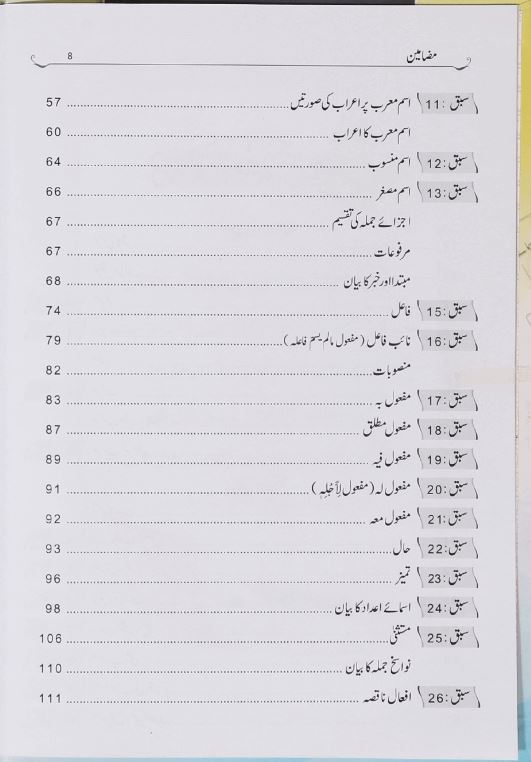 مضامین 8
سبق :11 اسم معرب پر اعراب کی صورتیں ........ 57
اسم معرب کا اعراب ........ 60
سبق :12 اسم منسوب ........ 64
سبق :13 اسم مصغر ........ 66
اجزائے جملہ کی تقسیم ........ 67
مرفوعات ........ 67
مبتدا اور خبر کا بیان ........ 68
سبق :15 فاعل ........ 74
سبق :16 نائب فاعل (مفعول مالم یسم فاعلہ) ........ 79
منصوبات ........ 82
سبق :17 مفعول بہ ........ 83
سبق :18 مفعول مطلق ........ 87
سبق :19 مفعول فیہ ........ 89
سبق :20 مفعول لہ (مفعول لِأَجْلِہٖ) ........ 91
سبق :21 مفعول معہ ........ 92
سبق :22 حال ........ 93
سبق :23 تمیز ........ 96
سبق :24 اسمائے اعداد کا بیان ........ 98
سبق :25 مستثنیٰ ........ 106
نواسخ جملہ کا بیان ........ 110
سبق :26 افعال ناقصہ ........ 111